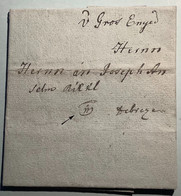 v Gros Enyed
Herrn
Herrn an Joseph An
Debreze